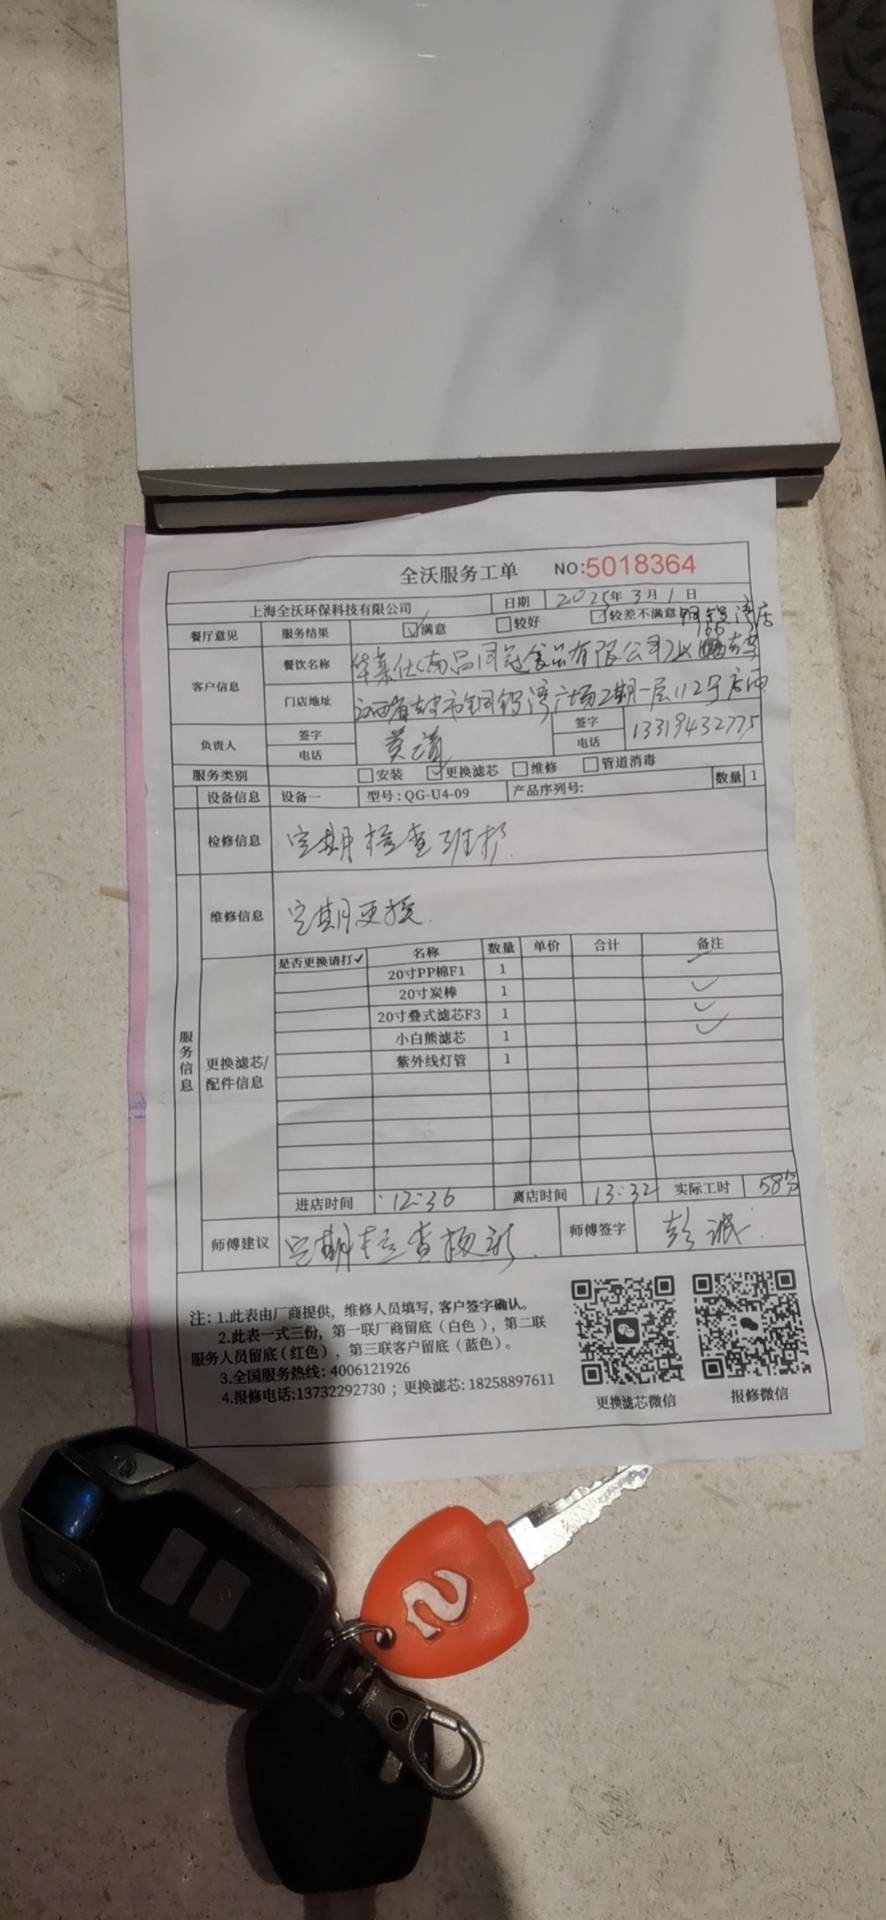 全沃服务工单 NO:5018364
上海全沃环保科技有限公司 日期 2025年3月1日
餐厅意见 服务结果 ☑满意 □较好 □较差不满意 铜锣湾店
客户信息 餐饮名称 华莱仕(南昌)食品有限公司
门店地址 江西省 市铜锣湾广场2期一层112号店面
负责人 签字 黄 签字
电话 电话 13319432775
服务类别 □安装 ☑更换滤芯 □维修 □管道消毒
设备信息 设备一 型号:QG-U4-09 产品序列号: 数量 1
检修信息 定期检查维护
维修信息 定期更换
服务信息
更换滤芯/配件信息
是否更换请打✓ 名称 数量 单价 合计 备注
20寸PP棉F1 1 ✓
20寸炭棒 1 ✓
20寸叠式滤芯F3 1 ✓
小白熊滤芯 1 ✓
紫外线灯管 1
进店时间 12:36 离店时间 13:32 实际工时 58分
师傅建议 定期检查换新 师傅签字 彭
注: 1.此表由厂商提供，维修人员填写，客户签字确认。
2.此表一式三份，第一联厂商留底（白色），第二联
服务人员留底（红色），第三联客户留底（蓝色）。
3.全国服务热线: 4006121926
4.报修电话:13732292730 ；更换滤芯: 18258897611
更换滤芯微信 报修微信